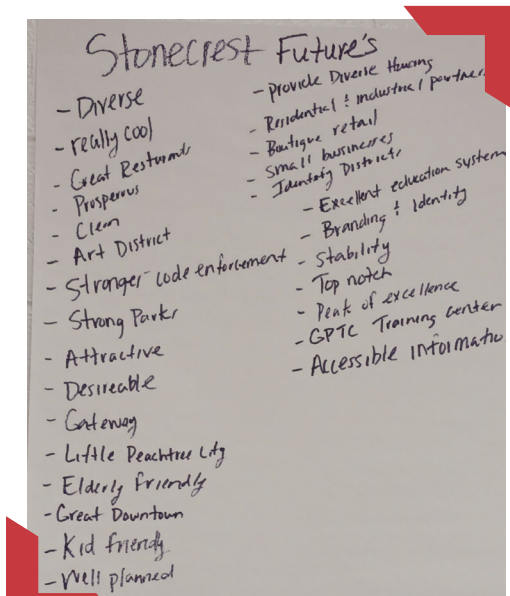 Stonecrest Future's
- Diverse
- really cool
- Great Resturants
- Prosperous
- Clean
- Art District
- Stronger code enforcement
- Strong Parks
- Attractive
- Desireable
- Gateway
- Little Peachtree City
- Elderly Friendly
- Great Downtown
- Kid friendly
- Well planned
- provide Diverse Housing
- Residential & industrial partner
- Boutique retail
- Small businesses
- Identity Districts
- Excellent education system
- Branding & Identity
- Stability
- Top notch
- Peak of excellence
- GPTC Training center
- Accessible informatio